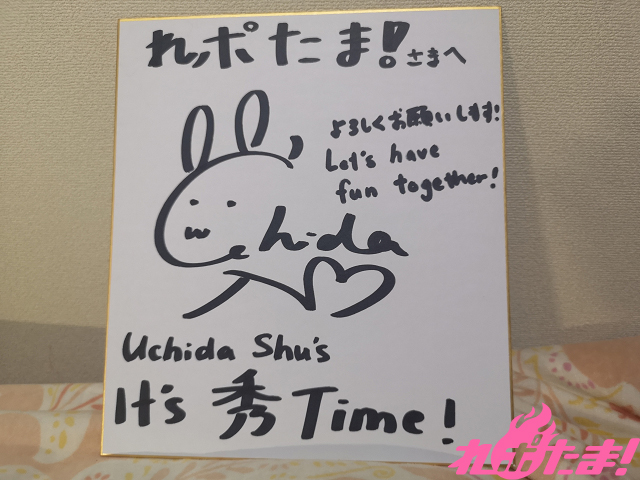 れポたま!さまへ
よろしくお願いします!
Let's have
fun together!
Uchida
Uchida Shu's
It's 秀 Time!
れポたま!